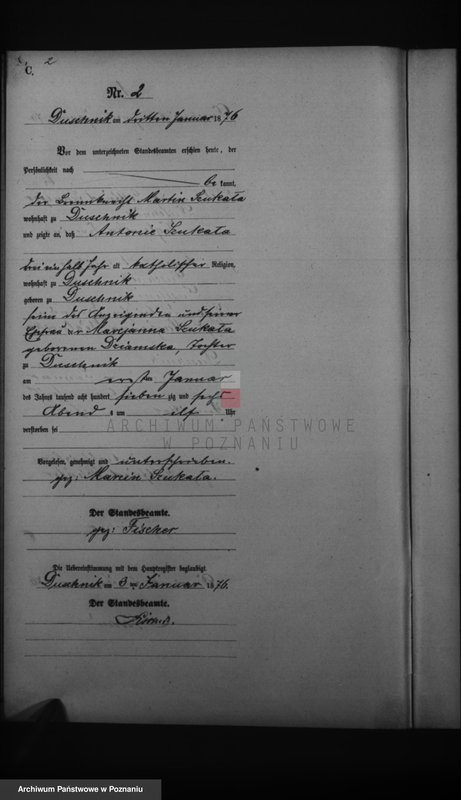 C. 2
Nr. 2
Duschnik am dritten Januar 1876
Vor dem unterzeichneten Standesbeamten erschien heute, der
Persönlichkeit nach
be kannt,
der Martin Szukała
wohnhaft zu Duschnik
und zeigte an, daß Antonie Szukała
drei ein halb Jahr alt katholischer Religion,
wohnhaft zu Duschnik
geboren zu Duschnik
seine des Anzeigenden und seiner
Ehefrau Marcjanna Szukała
geborenen Dziamska, Tochter
zu Duschnik
am ersten Januar
des Jahres tausend acht hundert sieben zig und sechs
Abend s um elf Uhr
verstorben sei
ARCHIWUM PAŃSTWOWE
W POZNANIU
Vorgelesen, genehmigt und unterschrieben.
gez: Marcin Szukała.
Der Standesbeamte.
gez: Fischer
Die Uebereinstimmung mit dem Hauptregister beglaubigt
Duschnik am 3 ten Januar 1876.
Der Standesbeamte.
Archiwum Państwowe w Poznaniu